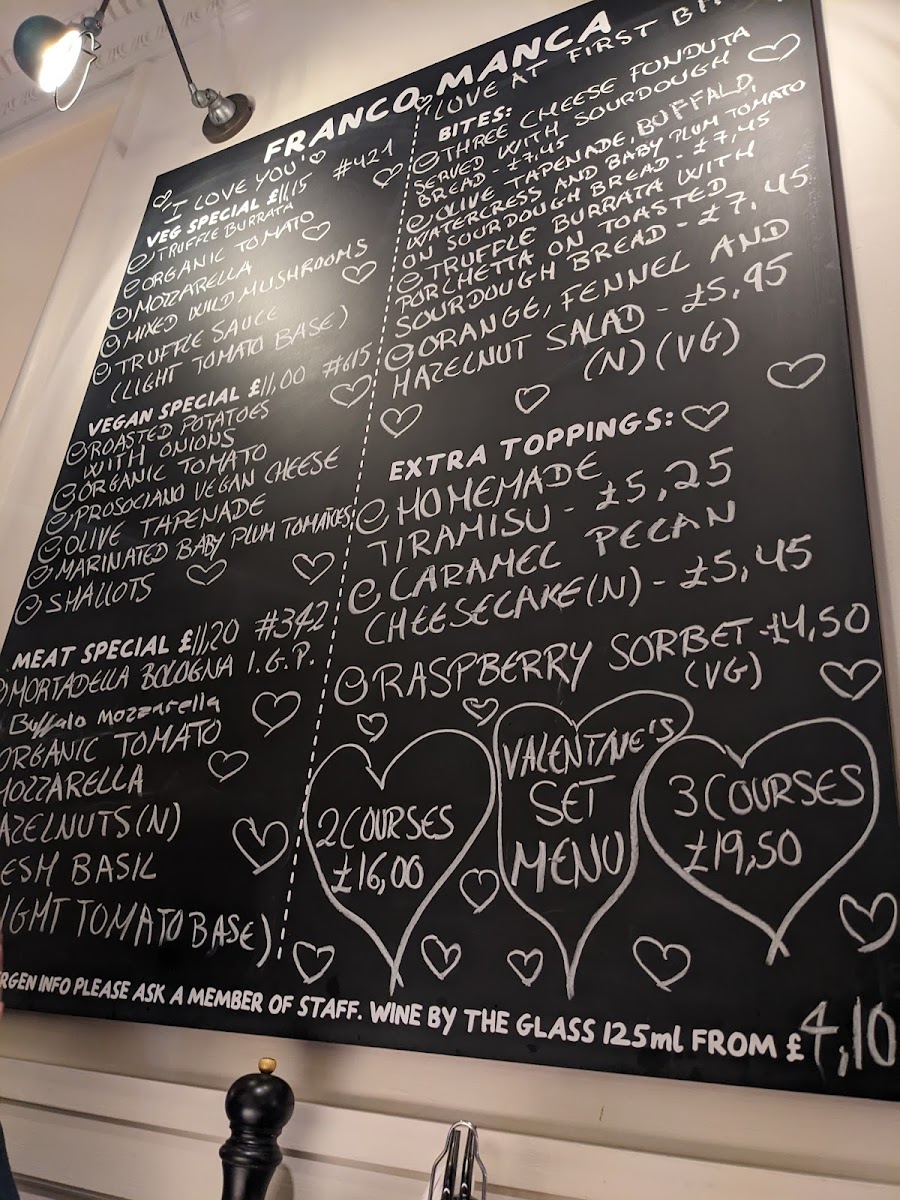 FRANCO MANCA
"I LOVE YOU"
VEG SPECIAL £11,15 #421
TRUFFLE BURRATA
ORGANIC TOMATO
MOZZARELLA
MIXED WILD MUSHROOMS
TRUFFLE SAUCE
(LIGHT TOMATO BASE)
VEGAN SPECIAL £11,00 #615
ROASTED POTATOES
WITH ONIONS
ORGANIC TOMATO
PROSOCIANO VEGAN CHEESE
OLIVE TAPENADE
MARINATED BABY PLUM TOMATOES
SHALLOTS
MEAT SPECIAL £11,20 #342
MORTADELLA BOLOGNA I.G.P.
Buffalo mozzarella
ORGANIC TOMATO
MOZZARELLA
AZELNUTS(N)
ESH BASIL
IGHT TOMATO BASE)
"LOVE AT FIRST
BITES:
THREE CHEESE FONDUTA
SERVED WITH SOURDOUGH
BREAD - £7,45
OLIVE TAPENADE, BUFFALO,
WATERCRESS AND BABY PLUM TOMATO
ON SOURDOUGH BREAD - £7,45
TRUFFLE BURRATA WITH
PORCHETTA ON TOASTED
SOURDOUGH BREAD - £7,45
ORANGE, FENNEL AND
HAZELNUT SALAD - £5,95
(N)(VG)
EXTRA TOPPINGS:
HOMEMADE
TIRAMISU - £5,25
CARAMEL PECAN
CHEESECAKE(N) - £5,45
RASPBERRY SORBET - £4,50
(VG)
2 COURSES
£16,00
VALENTINE'S
SET
MENU
3 COURSES
£19,50
RGEN INFO PLEASE ASK A MEMBER OF STAFF. WINE BY THE GLASS 125ml FROM £4,10